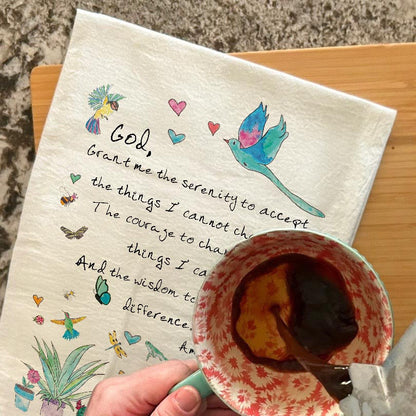 God,
Grant me the serenity to accept
the things I cannot
The courage to
things I
And the wisdom to
difference.